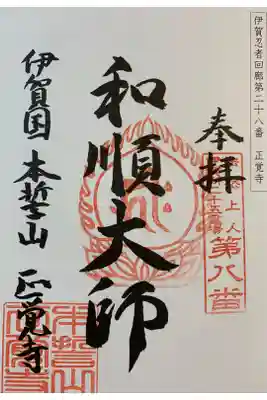 伊賀忍者回廊第二十八番 正覚寺
奉拝
上人
第八番
和順大師
伊賀国 本誓山 正覚寺
本誓山
正覚寺